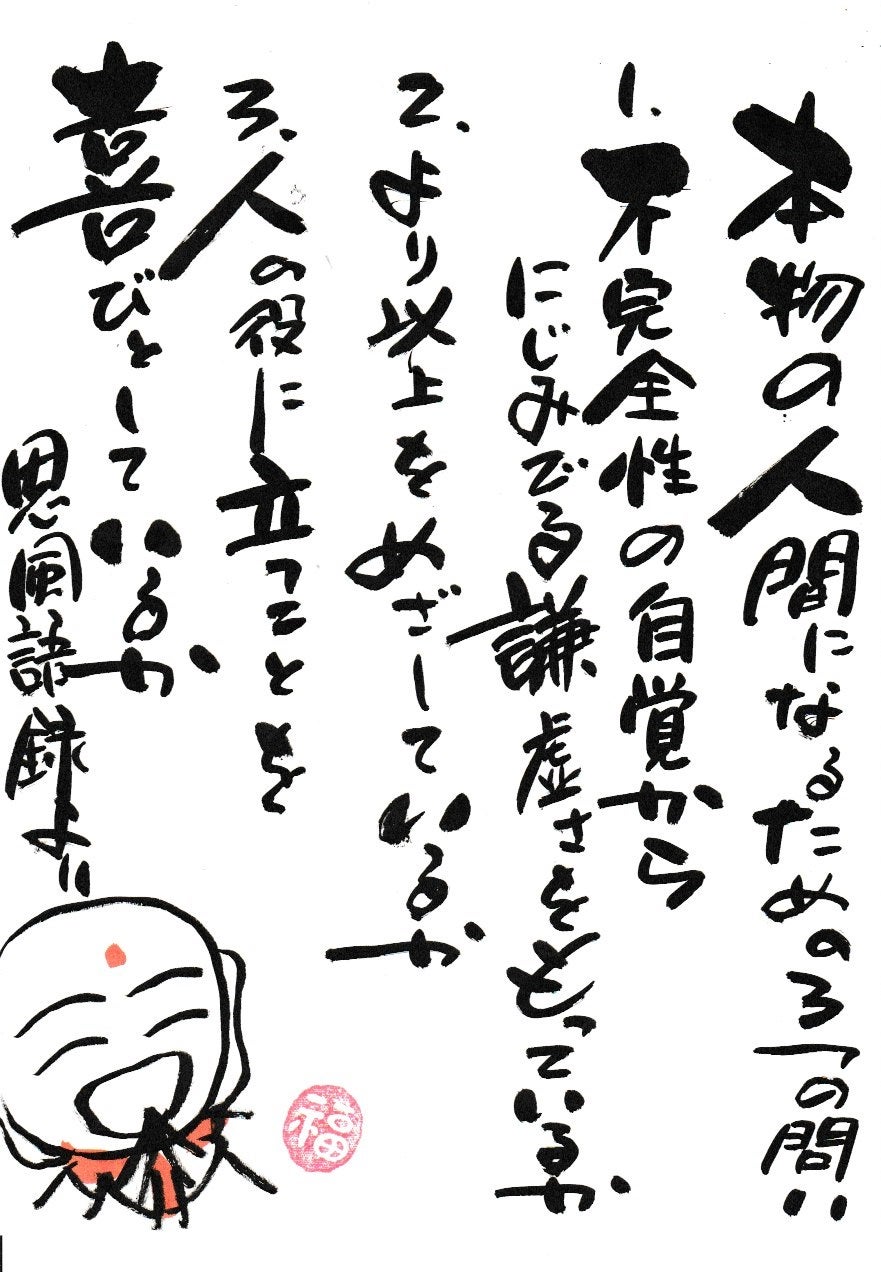 本物の人間になるための3つの問い
1.不完全性の自覚から
にじみでる謙虚さをもっているか
2.より以上をめざしているか
3.人の役に立つことを
喜びとしているか
思風語録より
福